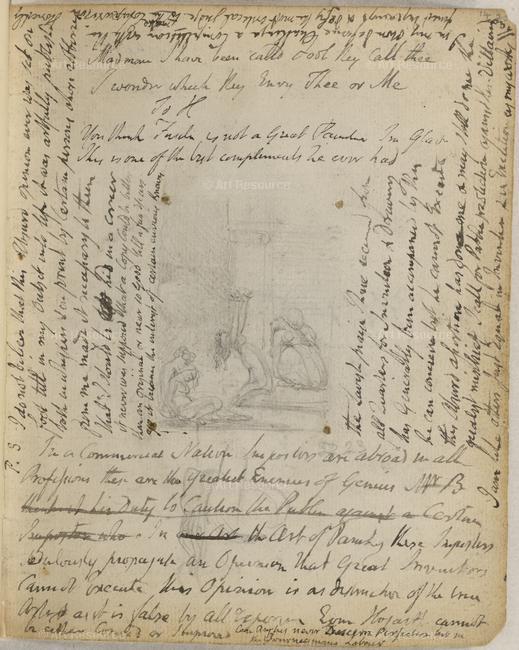 Madman I have been calld Fool they Call thee
I wonder which they Envy Thee or Me
To H
You think Fuseli is not a Great Painter Im Glad
This is one of the best compliments he ever had
In a Commercial Nation Impostors are abroad in all
Professions these are the Greatest Enemies of Genius Mr B
thinks it his Duty to Caution the Public against a Certain
Impostor who In our Art the Art of Painting these Impostors
sedulously propagate an Opinion that Great Inventors
Cannot Execute This Opinion is as destructive of the true
Artist as it is false by all Experience Even Hogarth cannot
be either Copied or Improved Can Anglus never Discern Perfection but in
the Journeymans Labour
P. S. I do not believe that this Absurd opinion ever was set on
foot till in my Outset into life it was artfully publishd
both in whispers & in print by Certain persons whose
robberies from me made it necessary to them
that I should be hid in a corner
it never was supposed that a Copy Could be better
than an original or near so Good till a few Years
ago it became the interest of certain envious Knaves
the lavish praise I have received from
all Quarters for Invention & Drawing
has Generally been accompanied by this
he can concieve but he cannot Execute
this Absurd assertion has done me & may still do me the
greatest mischief I call for Public protection against these Villains
I am like others Just Equal in Invention & in Execution as my works
in my own defence Challenge a Competition with the
© Art Resource
© Art Resource
© Art Resource
© Art Resource
© Art Resource